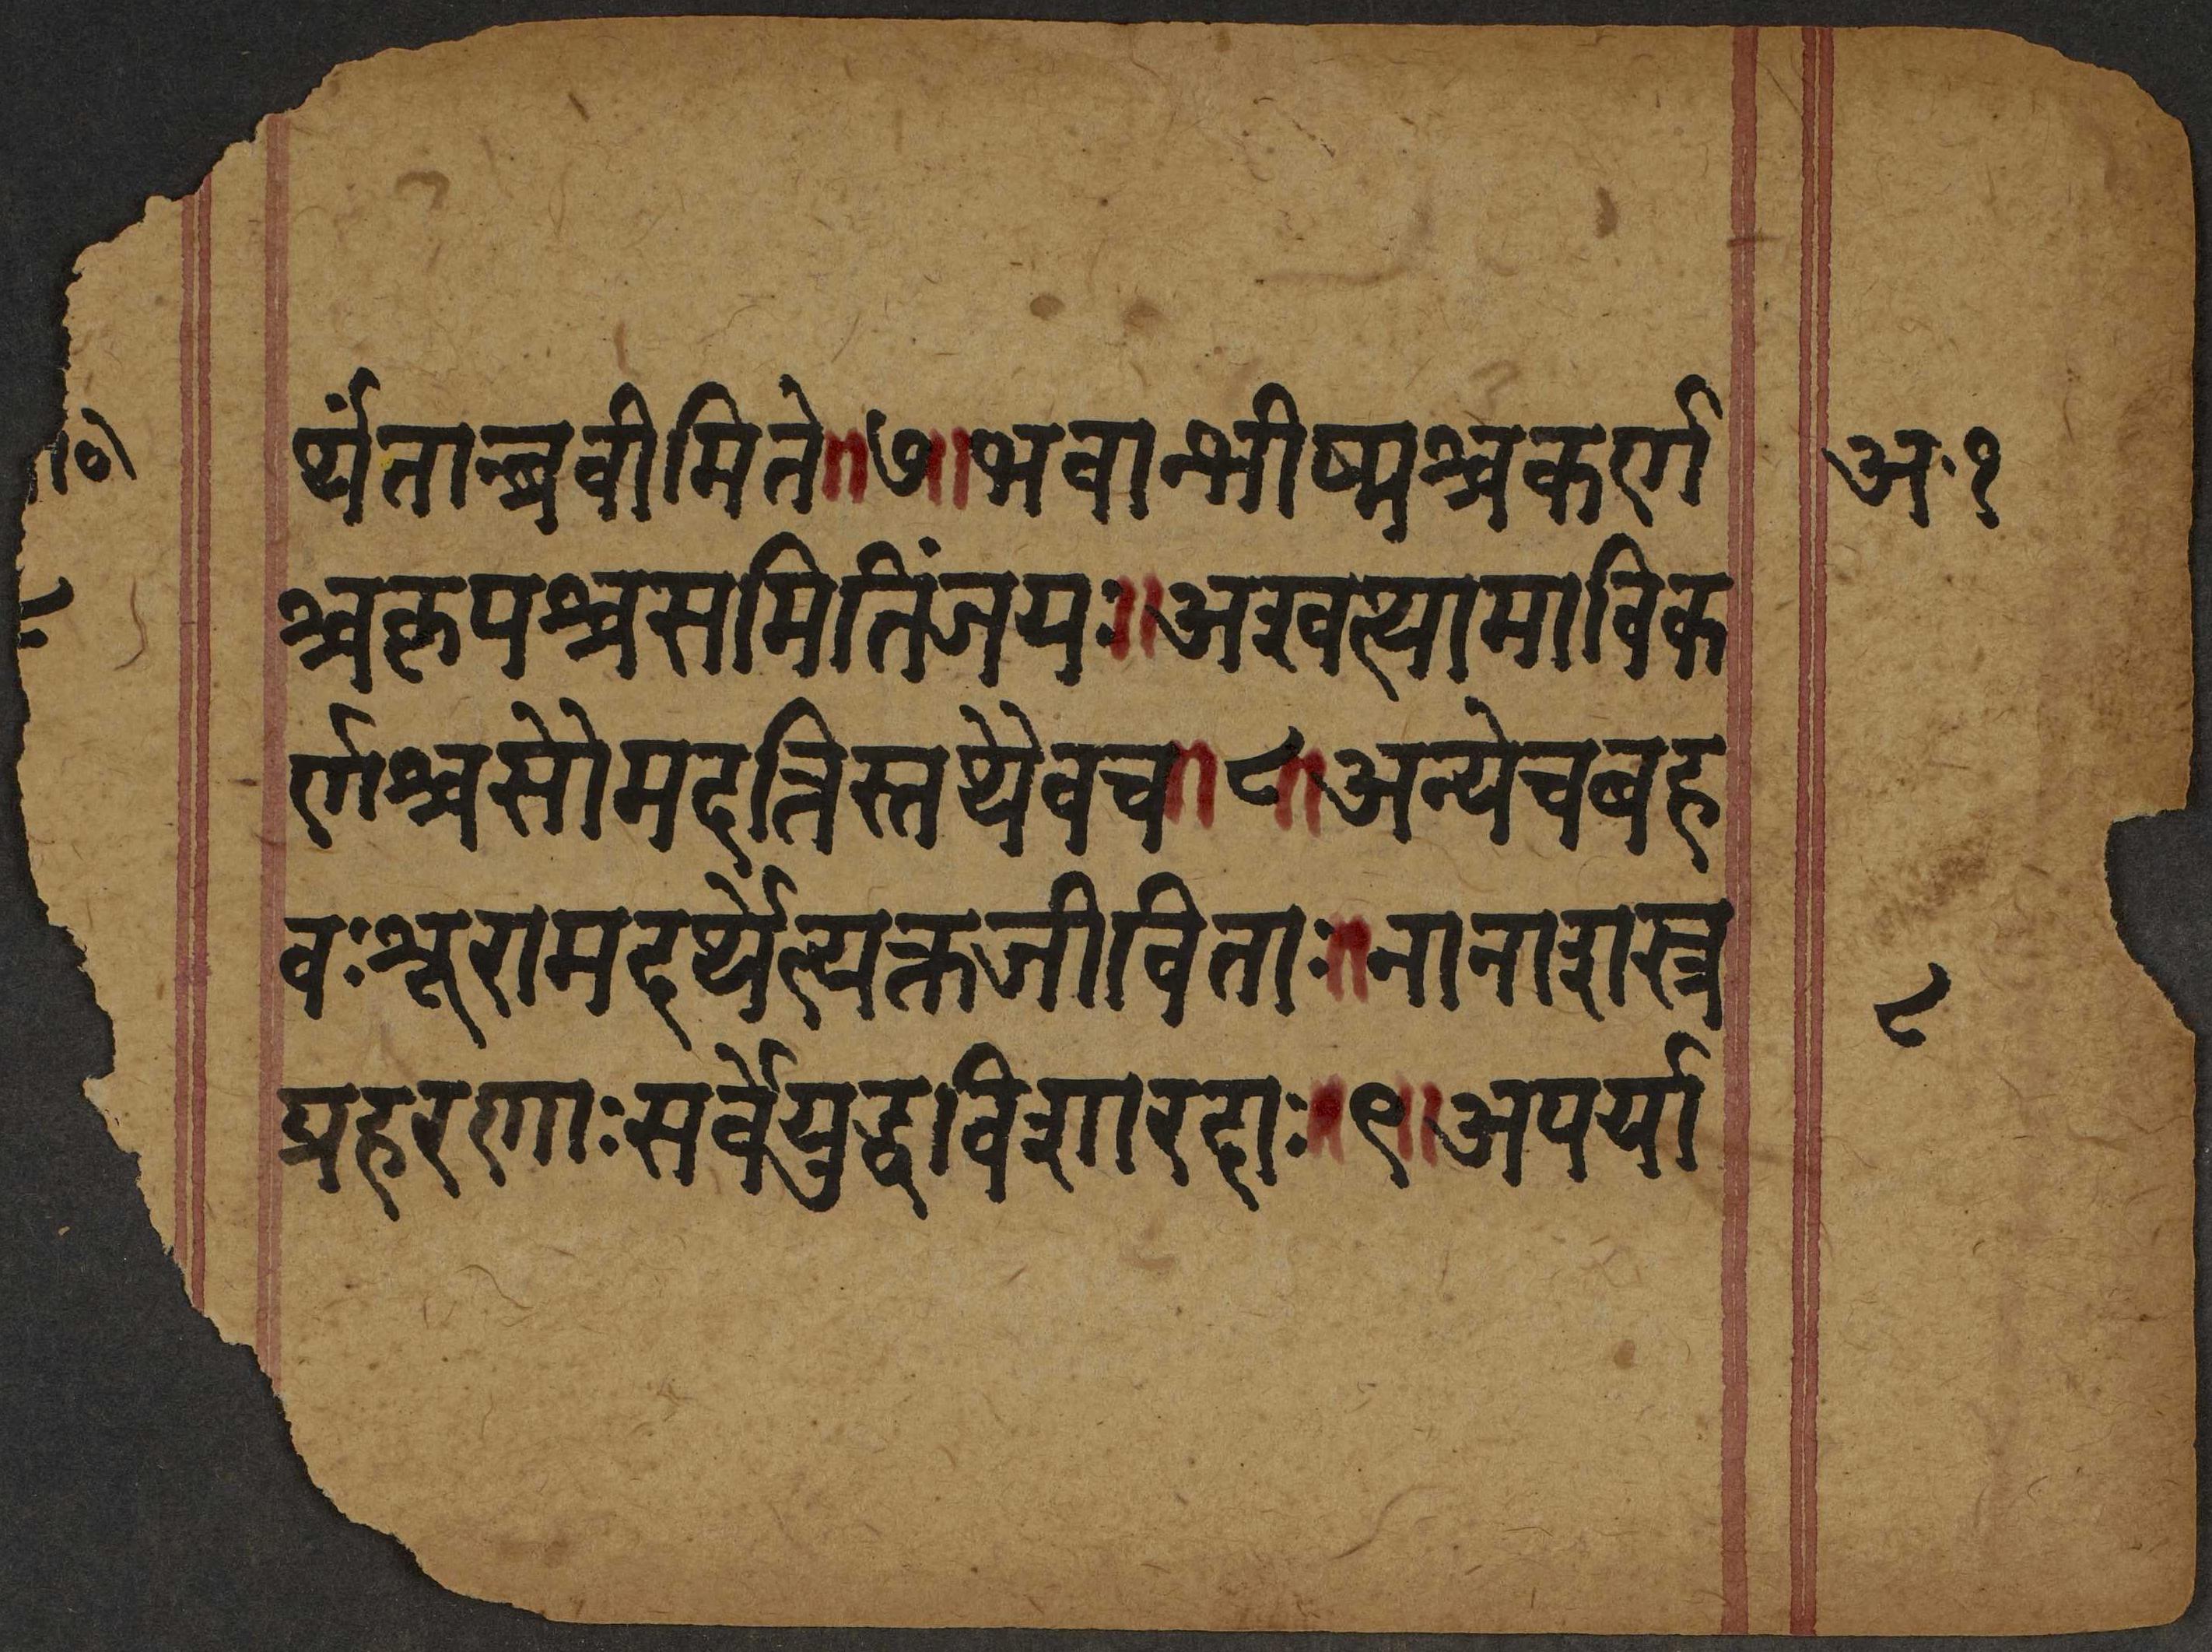 र्थंतान्ब्रवीमिते॥७॥भवान्भीष्मश्चकर्ण अ॰१
श्चकृपश्चसमितिंजयः॥अश्वत्थामाविक
र्णश्चसौमदत्तिस्तथैवच॥८॥अन्येचबह
वःशूरामदर्थेत्यक्तजीविताः॥नानाशस्त्र
प्रहरणाःसर्वेयुद्धविशारदाः॥९॥अपर्या
८